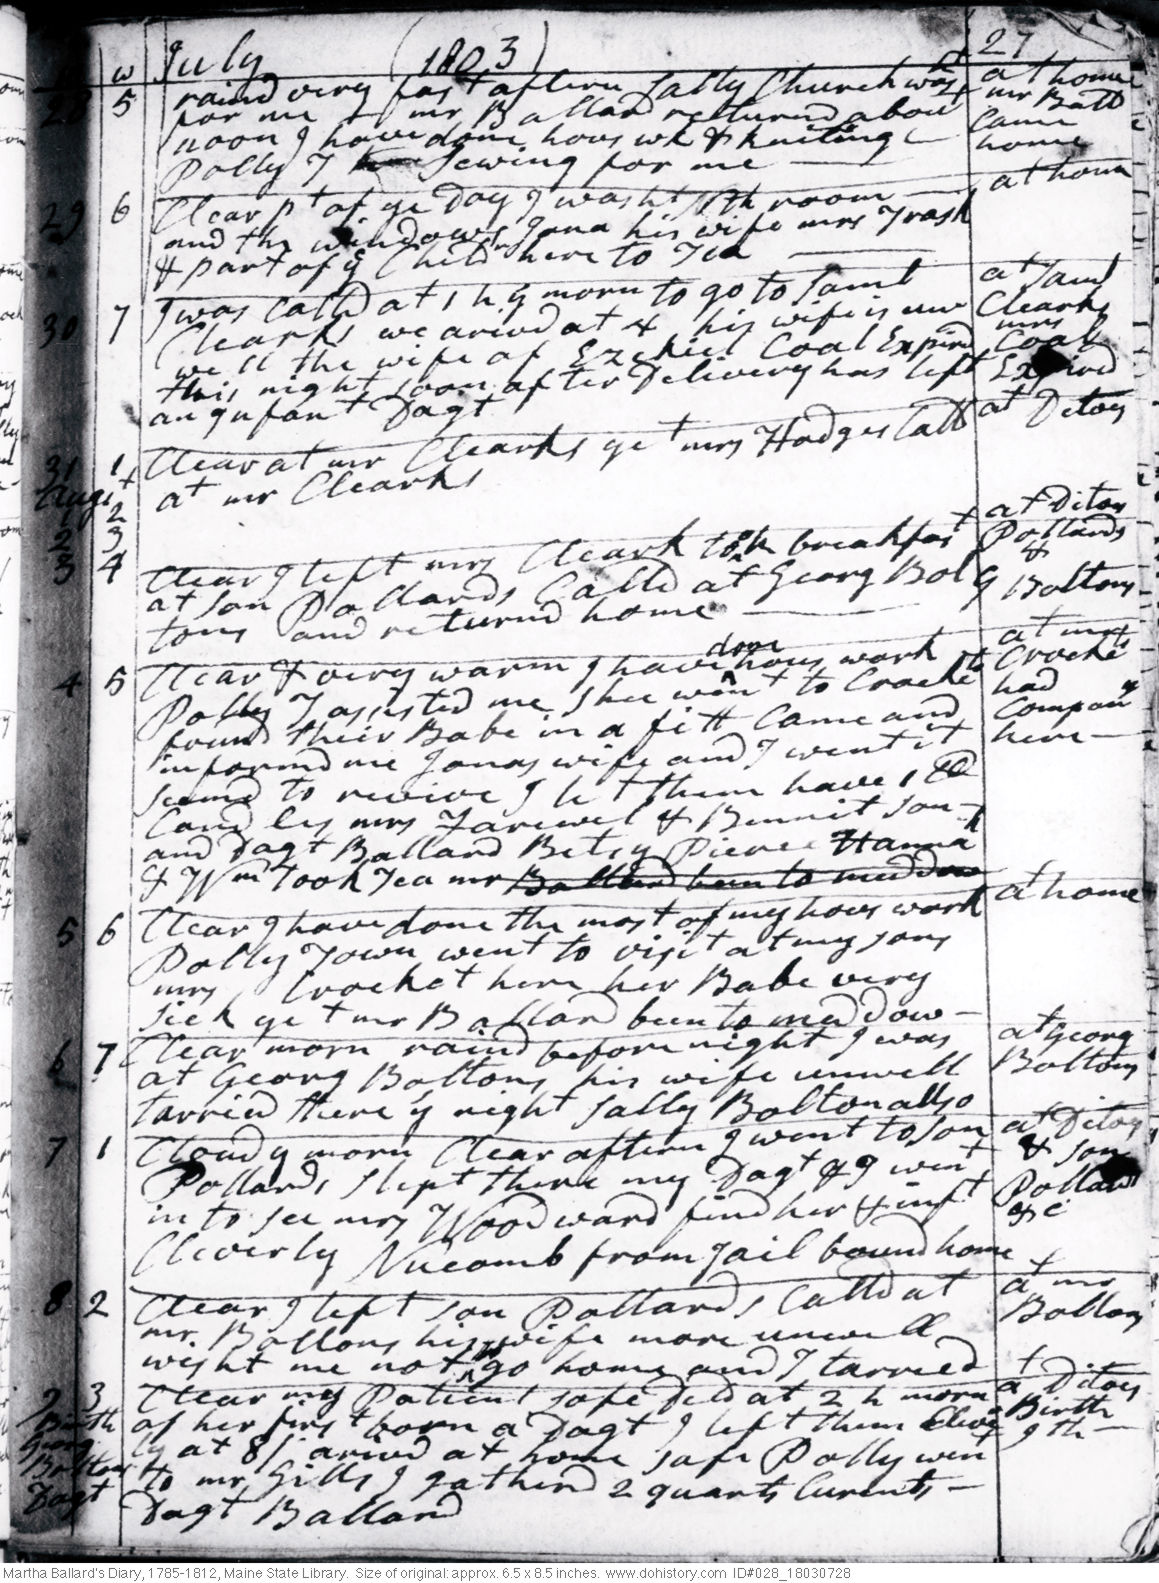 w July (1803) 27
28 5 raind very fast aftern Sally Church wvd at home
for me & mr Ballard returnd about mr Ball
noon I have done hous wk & kniting came
Polly T Sewing for me home
29 6 Clear pt of ye Day I washt room at home
and the windows Jona his wife mrs Trask
& part of ye Childn here to Tea
30 7 I was Calld at 1 h ys morn to go to Saml at Saml
Clearks we arivd at 4 his wife is unw Clearks
well the wife of Ezekiel Coal Expird mrs Coal
this night soon after Delivery has left Expired
an Infant Dagt
31 1 Clear at mr Clearks yet mrs Hodges Calld at Ditoes
Augst at mr Clearks
1 2
2 3 at Ditoes
3 4 Clear I left mrs Cleark took breakfast Pollards
at son Pollards Calld at Georg Bol &
tons and returnd home Boltons
4 5 Clear & very warm I have done hous work at mrs
Polly T assisted me shee went to Crocket Crockets
found their Babe in a fitt Came and had
informd me Jonas wife and I went it Compani
seemd to revive I let them have 1 lb here
Candles mrs Farewel & Bennit son
and Dagt Ballard Betsy Pierce Hanna
& Wm Took Tea mr Ballard been to meddow
5 6 Clear I have done the most of my hous work at home
Polly Town went to visit at my sons
mrs Crocket here her Babe very
sick yet mr Ballard been to meddow
6 7 Clear morn raind before night I was at Georg
at Georg Boltons his wife unwell Boltons
tarried there ys night Sally Bolton allso
7 1 Cloudy morn Clear aftern I went to son at Ditoes
Pollards slept there my Dagt & I went & son
in to see mrs Woodward find her & inft Pollards
Cleverly Nucomb from Jail bound home &c
8 2 Clear I left son Pollards Calld at at mr
mr Boltons his wife more unwell Boltons
wisht me not to go home and I tarried
9 3 Clear my Patient safe Deld at 2 h morn at Ditoes
Birth of her first born a Dagt I left them Clevr Birth
Georg ly at 8 / arivd at home safe Polly went 9th
Boltons to mr Gills I gatherd 2 quarts Curents
Dagt Dagt Ballard
Martha Ballard's Diary, 1785-1812, Maine State Library. Size of original: approx. 6.5 x 8.5 inches. www.dohistory.com ID#028_18030728